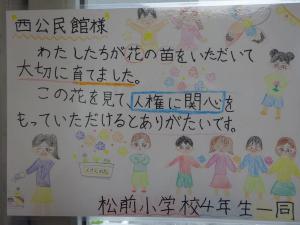 西公民館様
わたしたちが花の苗をいただいて
大切に育てました。
この花を見て、人権に関心を
もっていただけるとありがたいです。
松前小学校4年生一同